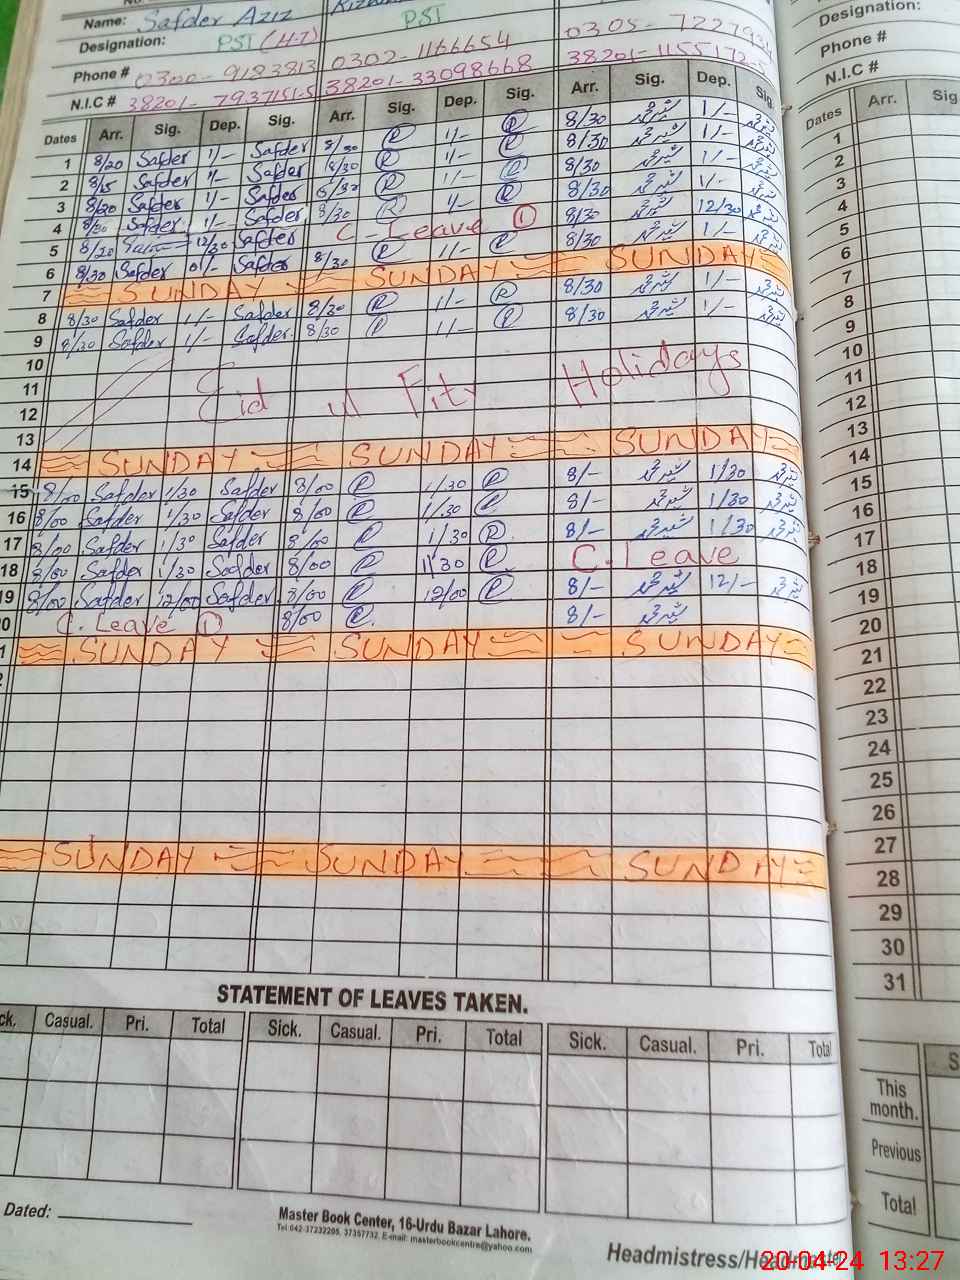 Name: Safder Aziz
Designation: PST (H-T) PST
Phone # 0300-9183813 0302-1166654 0305-
N.I.C # 38201-7937151-5 38201-33098668 38201-1155172-
Dates Arr. Sig. Dep. Sig. Arr. Sig. Dep. Sig. Arr. Sig. Dep. Sig.
1 8/20 Safder 1/- Safder 8/30 R 1/- R 8/30 1/-
2 8/15 Safder 1/- Safder 8/30 R 1/- R 8/30 1/-
3 8/20 Safder 1/- Safder 8/30 R 1/- R 8/30 1/-
4 8/30 Safder 1/- Safder 8/30 R 1/- R 8/30 1/-
5 8/20 12/30 Safder C-Leave 1 8/30 12/30
6 8/30 Safder 01/- Safder 8/30 R 11/- R 8/30 1/-
7 SUNDAY SUNDAY SUNDAY
8 8/30 Safder 1/- Safder 8/30 R 1/- R 8/30 1/-
9 8/30 Safder 1/- Safder 8/30 R 1/- R 8/30 1/-
10
11 Eid ul Fitr Holidays
12
13
14 SUNDAY SUNDAY SUNDAY
15 8/00 Safder 1/30 Safder 8/00 R 1/30 R 8/- 1/30
16 8/00 Safder 1/30 Safder 8/00 R 1/30 R 8/- 1/30
17 8/00 Safder 1/30 Safder 8/00 R 1/30 R 8/- 1/30
18 8/00 Safder 1/30 Safder 8/00 R 1/30 R C. Leave
19 8/00 Safder 12/00 Safder 8/00 R 12/00 R 8/- 12/-
0 C. Leave 1 8/00 R 8/-
1 SUNDAY SUNDAY SUNDAY
SUNDAY SUNDAY SUNDAY
STATEMENT OF LEAVES TAKEN.
ck. Casual. Pri. Total Sick. Casual. Pri. Total Sick. Casual. Pri. Total
Dated:
Master Book Center, 16-Urdu Bazar Lahore.
Tel:042-37232205, 37357732, E-mail: masterbookcentre@yahoo.com
Headmistress/Headmaster
Designation:
Phone #
N.I.C #
Dates Arr. Sig
1
2
3
4
5
6
7
8
9
10
11
12
13
14
15
16
17
18
19
20
21
22
23
24
25
26
27
28
29
30
31
S
This month.
Previous
Total
20-04-24 13:27